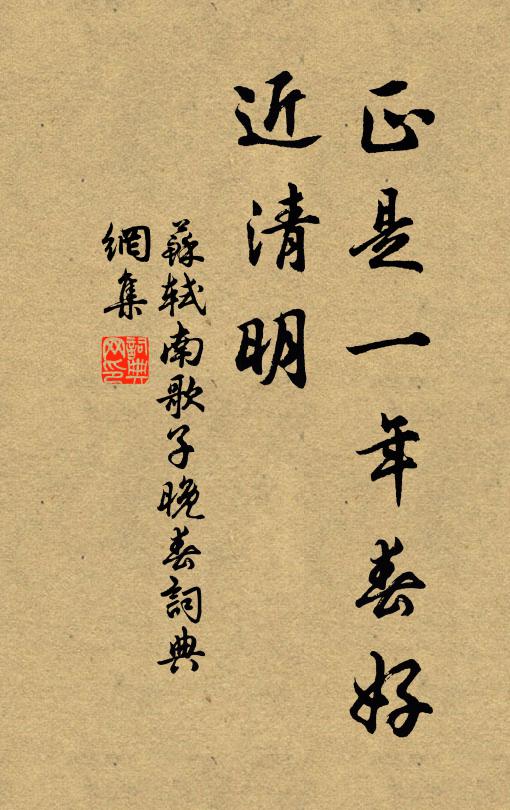 正是一年春好
近清明
蘇軾南歌子晚春詞典
網集
詞典
网印